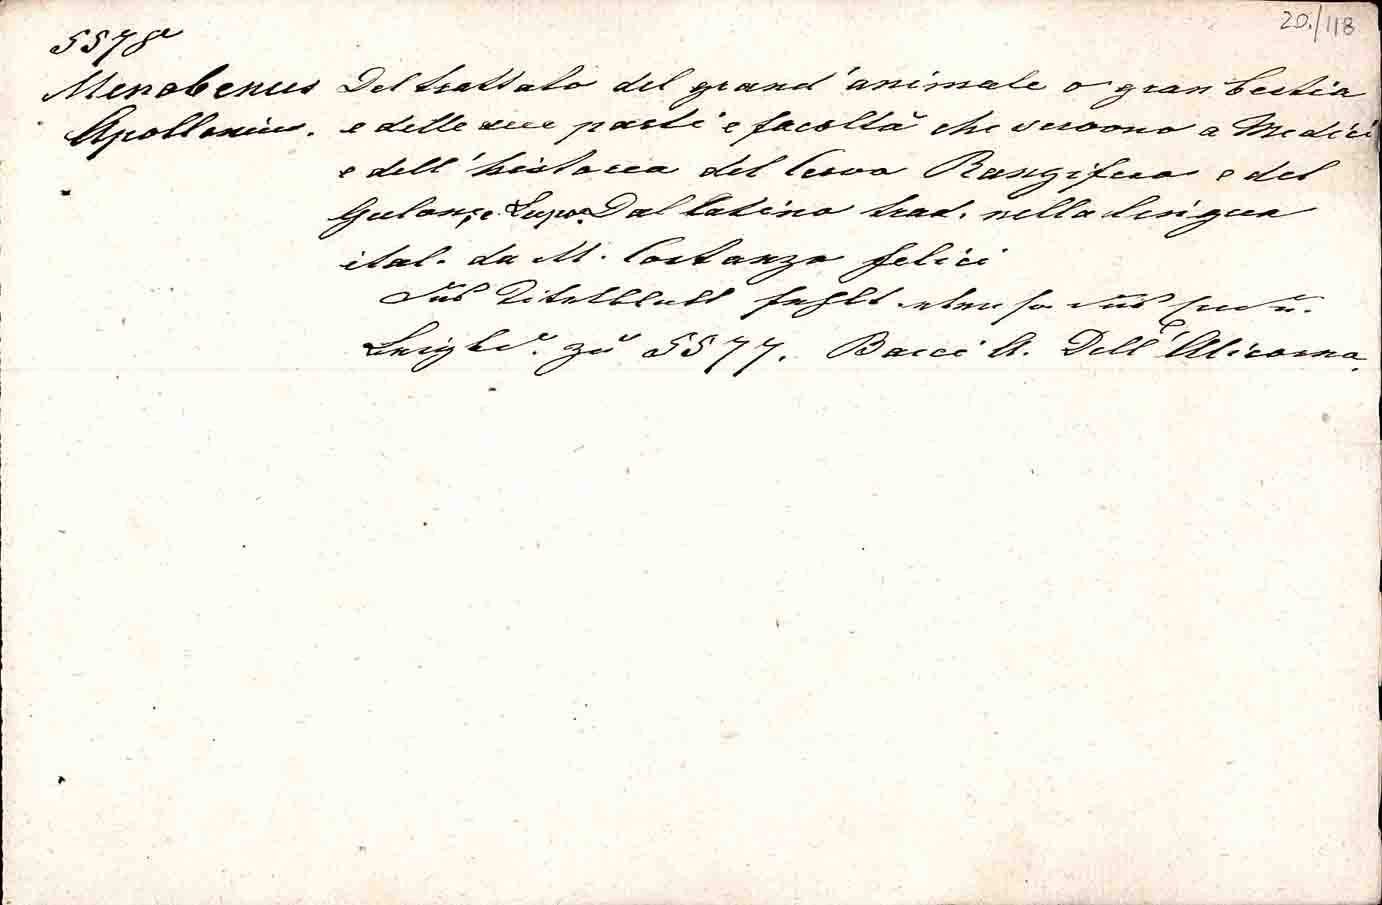 20./118
5578
Menabenus Del trattato del grand'animale o gran bestia
Apollonius. e delle sue parti e facoltà che servono a Medici
e dell'historia del Cervo Rangifero e del
Gulone, e Lupo. Dal latino trad. nella lingua
ital. da M. Costanzo Felici
Das Titelblatt fehlt ebenso das
zu 5577. Bacci A. Dell'Alicorno.